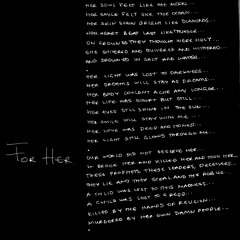 HER SOUL FELT LIKE THE MOON...
HER SMILE FELT LIKE THE OCEAN...
HER SKIN SHONE BRIGHT LIKE DIAMONDS...
HER HEART BEAT LAST LIKE THUNDER...
ON GROUNDS THEY THOUGHT WERE HOLY...
SHE SHIVERED AND QUIVERED AND WITHERED...
AND DROWNED IN SALT AND WATER...
HER LIGHT WAS LOST TO DARKNESS...
HER DREAMS WILL STAY AS DREAMS...
HER BODY COULDN'T ACHE ANY LONGER...
HER LIFE WAS SHORT BUT STILL...
HER EYES STILL SHINE IN THE SUN...
HER SMILE WILL STAY WITH ME...
HER LOVE WAS DEEP AND HONEST...
HER LIGHT STILL GLOWS THROUGH ME...
FOR HER.
OUR WORLD DID NOT DESERVE HER...
IT BROKE HER AND KILLED HER AND TOOK HER...
THESE PROPHETS, THESE LEADERS, DECEIVERS...
THEY LIE AND THEY STEAL AND THEY ROB US...
A CHILD WAS LOST TO THIS MADNESS...
A CHILD WAS LOST TO GREED...
KILLED BY THE HANDS OF RELIGION...
MURDERED BY HER OWN DAMN PEOPLE...